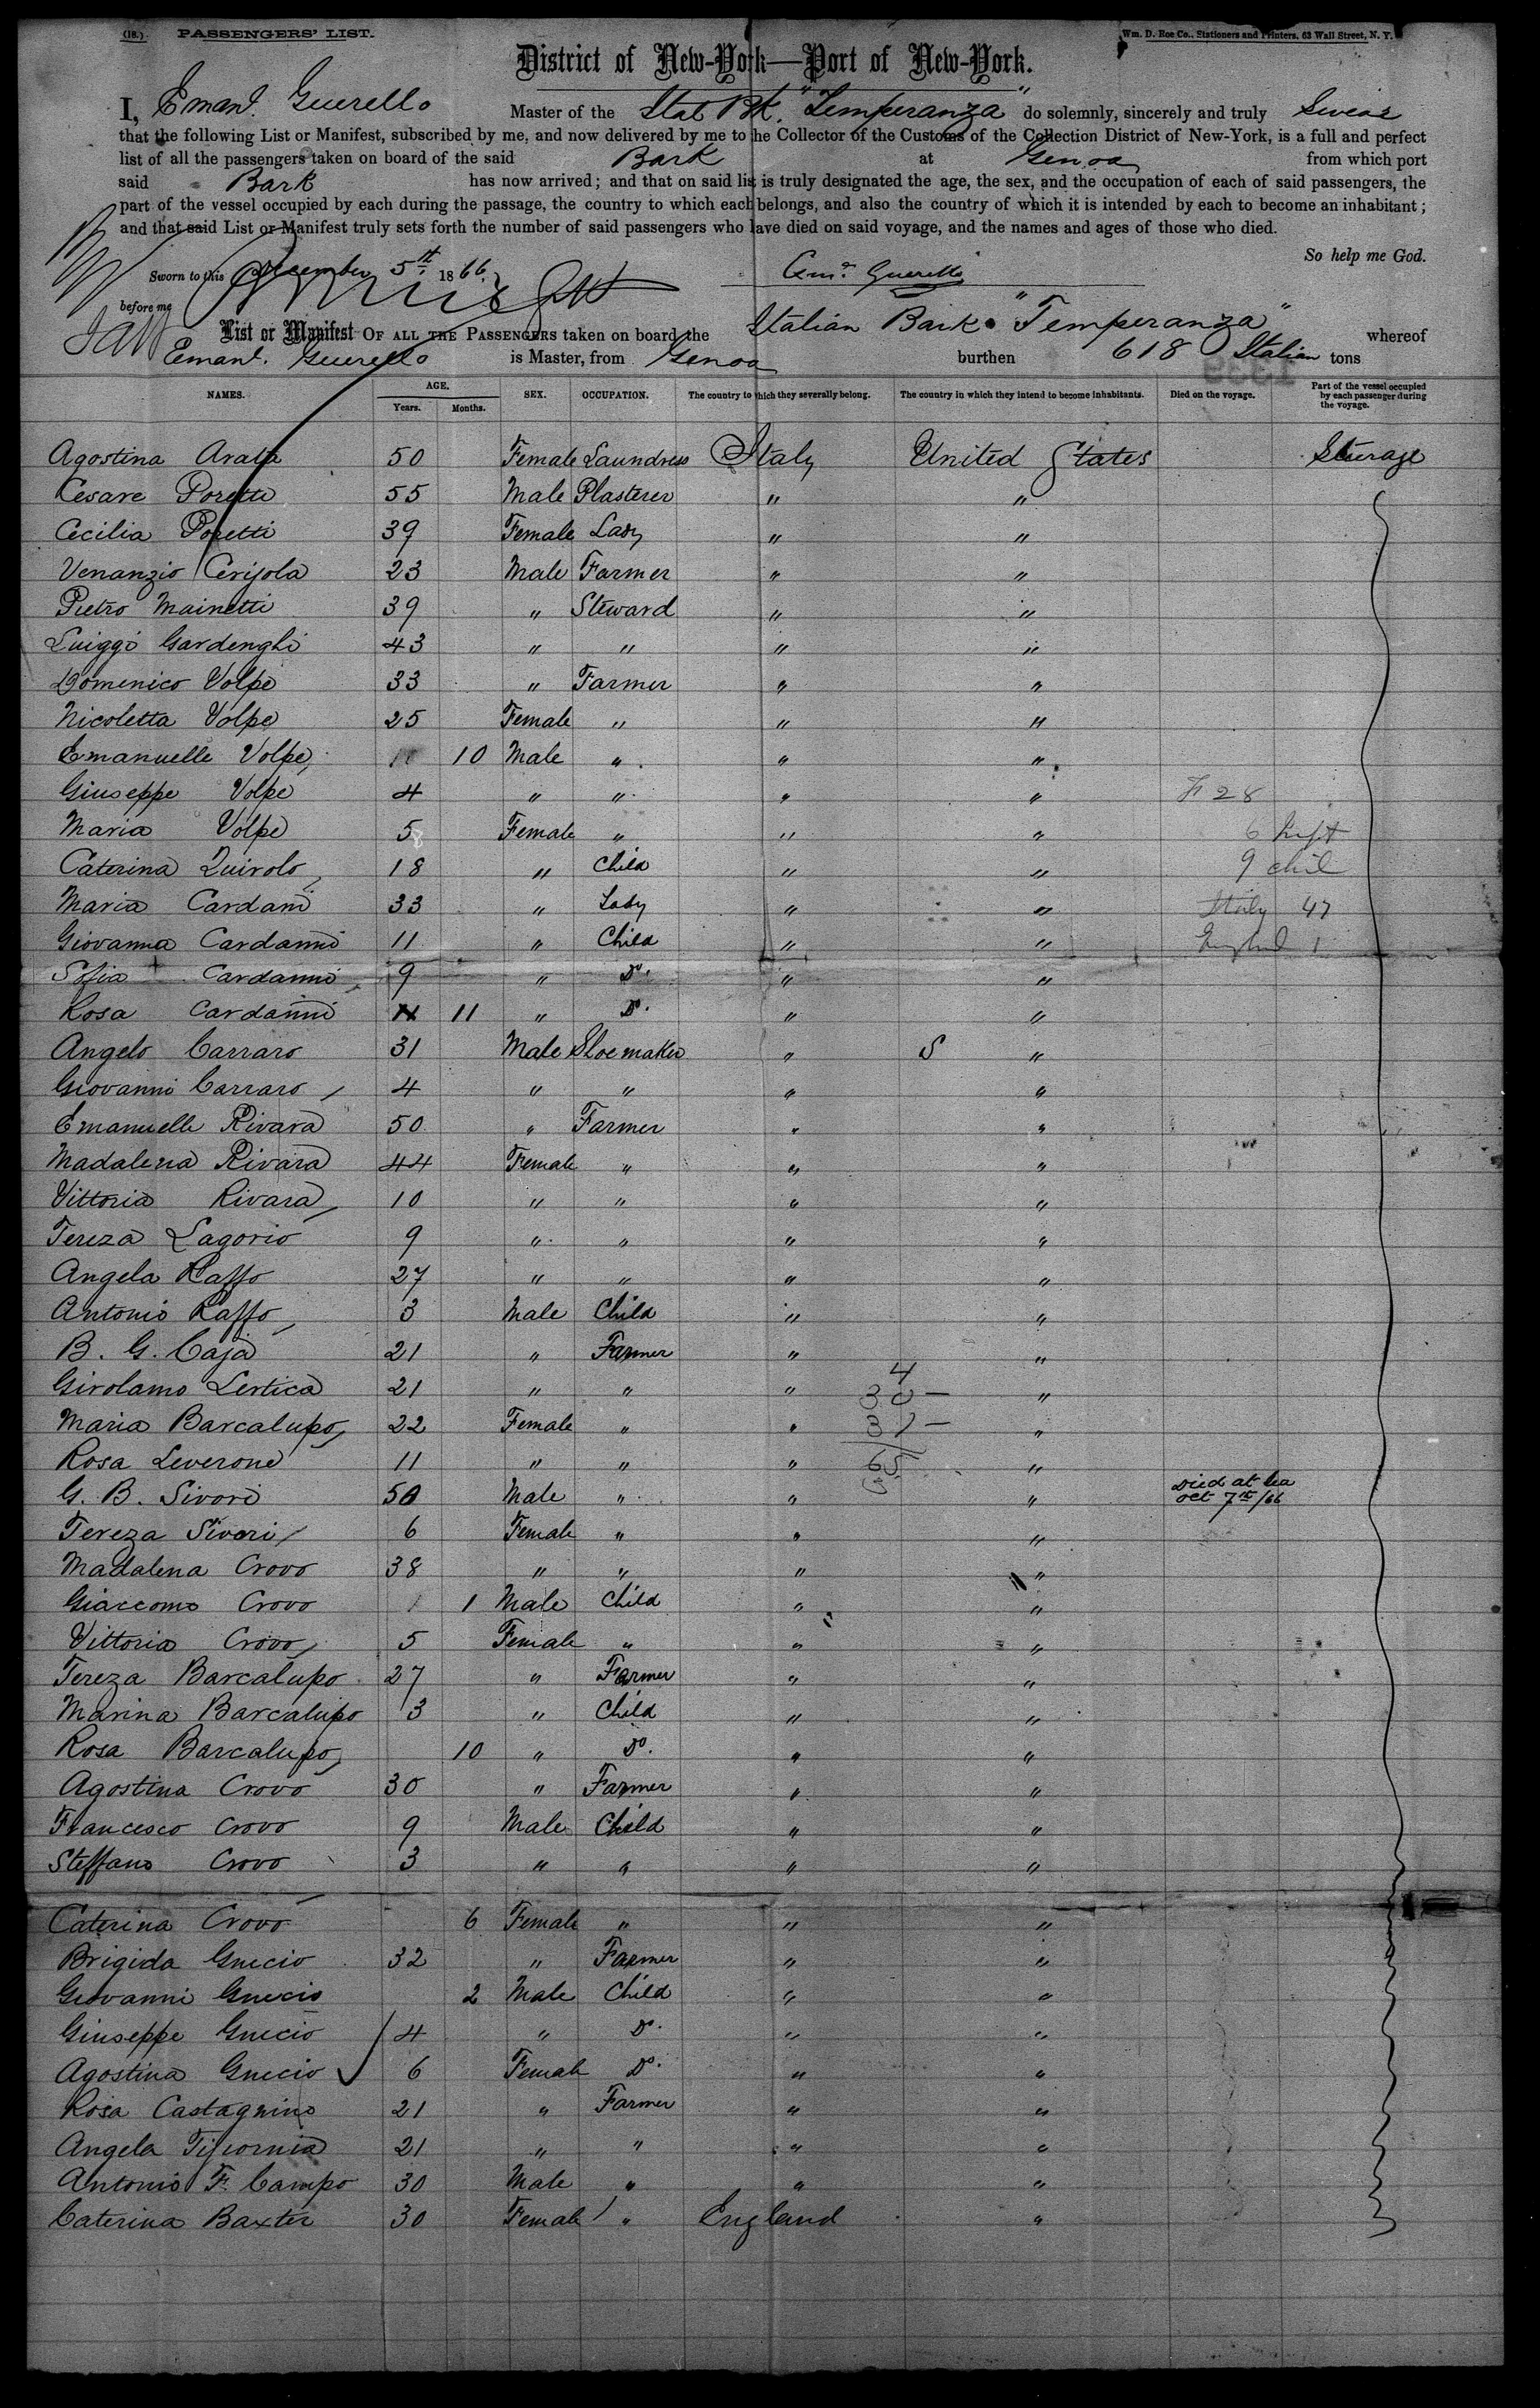 (18.) PASSENGERS' LIST. Wm. D. Roe Co., Stationers and Printers, 63 Wall Street, N. Y.
District of New-York—Port of New-York.
I, Emanl. Guerello Master of the Ital Bk. "Temperanza" do solemnly, sincerely and truly Swear
that the following List or Manifest, subscribed by me, and now delivered by me to the Collector of the Customs of the Collection District of New-York, is a full and perfect
list of all the passengers taken on board of the said Bark at Genoa from which port
said Bark has now arrived; and that on said list is truly designated the age, the sex, and the occupation of each of said passengers, the
part of the vessel occupied by each during the passage, the country to which each belongs, and also the country of which it is intended by each to become an inhabitant;
and that said List or Manifest truly sets forth the number of said passengers who have died on said voyage, and the names and ages of those who died.
So help me God.
Sworn to this December 5th 1866. Eml. Guerello
before me
List or Manifest OF ALL THE PASSENGERS taken on board the Italian Bark "Temperanza" whereof
Emanl. Guerello is Master, from Genoa burthen 618 Italian tons
NAMES. AGE. Years. Months. SEX. OCCUPATION. The country to which they severally belong. The country in which they intend to become inhabitants. Died on the voyage. Part of the vessel occupied by each passenger during the voyage.
Agostina Arata 50 Female Laundress Italy United States Steerage
Cesare Poretti 55 Male Plasterer " "
Cecilia Poretti 39 Female Lady " "
Venanzio Cerijola 23 Male Farmer " "
Pietro Mainetti 39 " Steward " "
Luiggi Gardenghi 43 " " " "
Domenico Volpe 33 " Farmer " "
Nicoletta Volpe 25 Female " " "
Emanuelle Volpe 10 Male " " "
Giuseppe Volpe 4 " " " " F 28
Maria Volpe 5 Female " " " 6
Caterina Quirolo 18 " Child " " 9 chil
Maria Cardani 33 " Lady " " Italy 47
Giovanna Cardanni 11 " Child " " England 1
Sofia Cardanni 9 " Do. " "
Rosa Cardanni 11 " Do. " "
Angelo Carraro 31 Male Shoemaker " S "
Giovanni Carraro 4 " " " "
Emanuelle Rivara 50 " Farmer " "
Madalena Rivara 44 Female " " "
Vittoria Rivara 10 " " " "
Tereza Lagorio 9 " " " "
Angela Raffo 27 " " " "
Antonio Raffo 3 Male Child " "
B. G. Caja 21 " Farmer " "
4
Girolamo Lertica 21 " " " 30 — "
Maria Barcalupo 22 Female " " 31 — "
Rosa Leverone 11 " " " 65 "
G. B. Sivori 50 Male " " " Died at Sea Oct 7th/66
Tereza Sivori 6 Female " " "
Madalena Crovo 38 " " " "
Giaccomo Crovo 1 Male Child " "
Vittoria Crovo 5 Female " " "
Tereza Barcalupo 27 " Farmer " "
Marina Barcalupo 3 " Child " "
Rosa Barcalupo 10 " Do. " "
Agostina Crovo 30 " Farmer " "
Francesco Crovo 9 Male Child " "
Steffano Crovo 3 " " " "
Caterina Crovo 6 Female " " "
Brigida Gnecio 32 " Farmer " "
Giovanni Gnecio 2 Male Child " "
Giuseppe Gnecio 4 " Do. " "
Agostina Gnecio 6 Female Do. " "
Rosa Castagnino 21 " Farmer " "
Angela Tiscornia 21 " " " "
Antonio F. Campo 30 Male " " "
Caterina Baxter 30 Female " England "